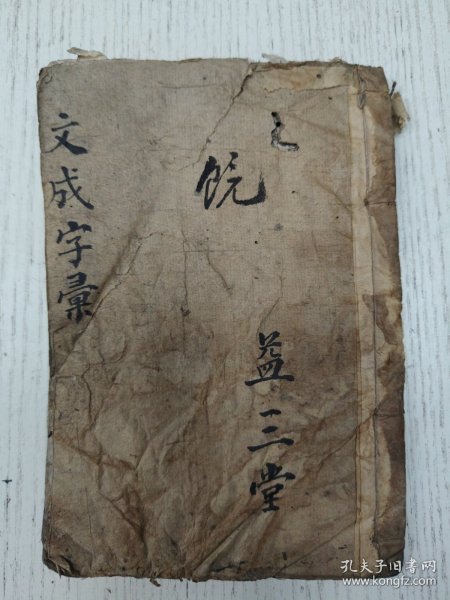 文成字彙
益三堂
孔夫子旧书网
www.kongfz.com